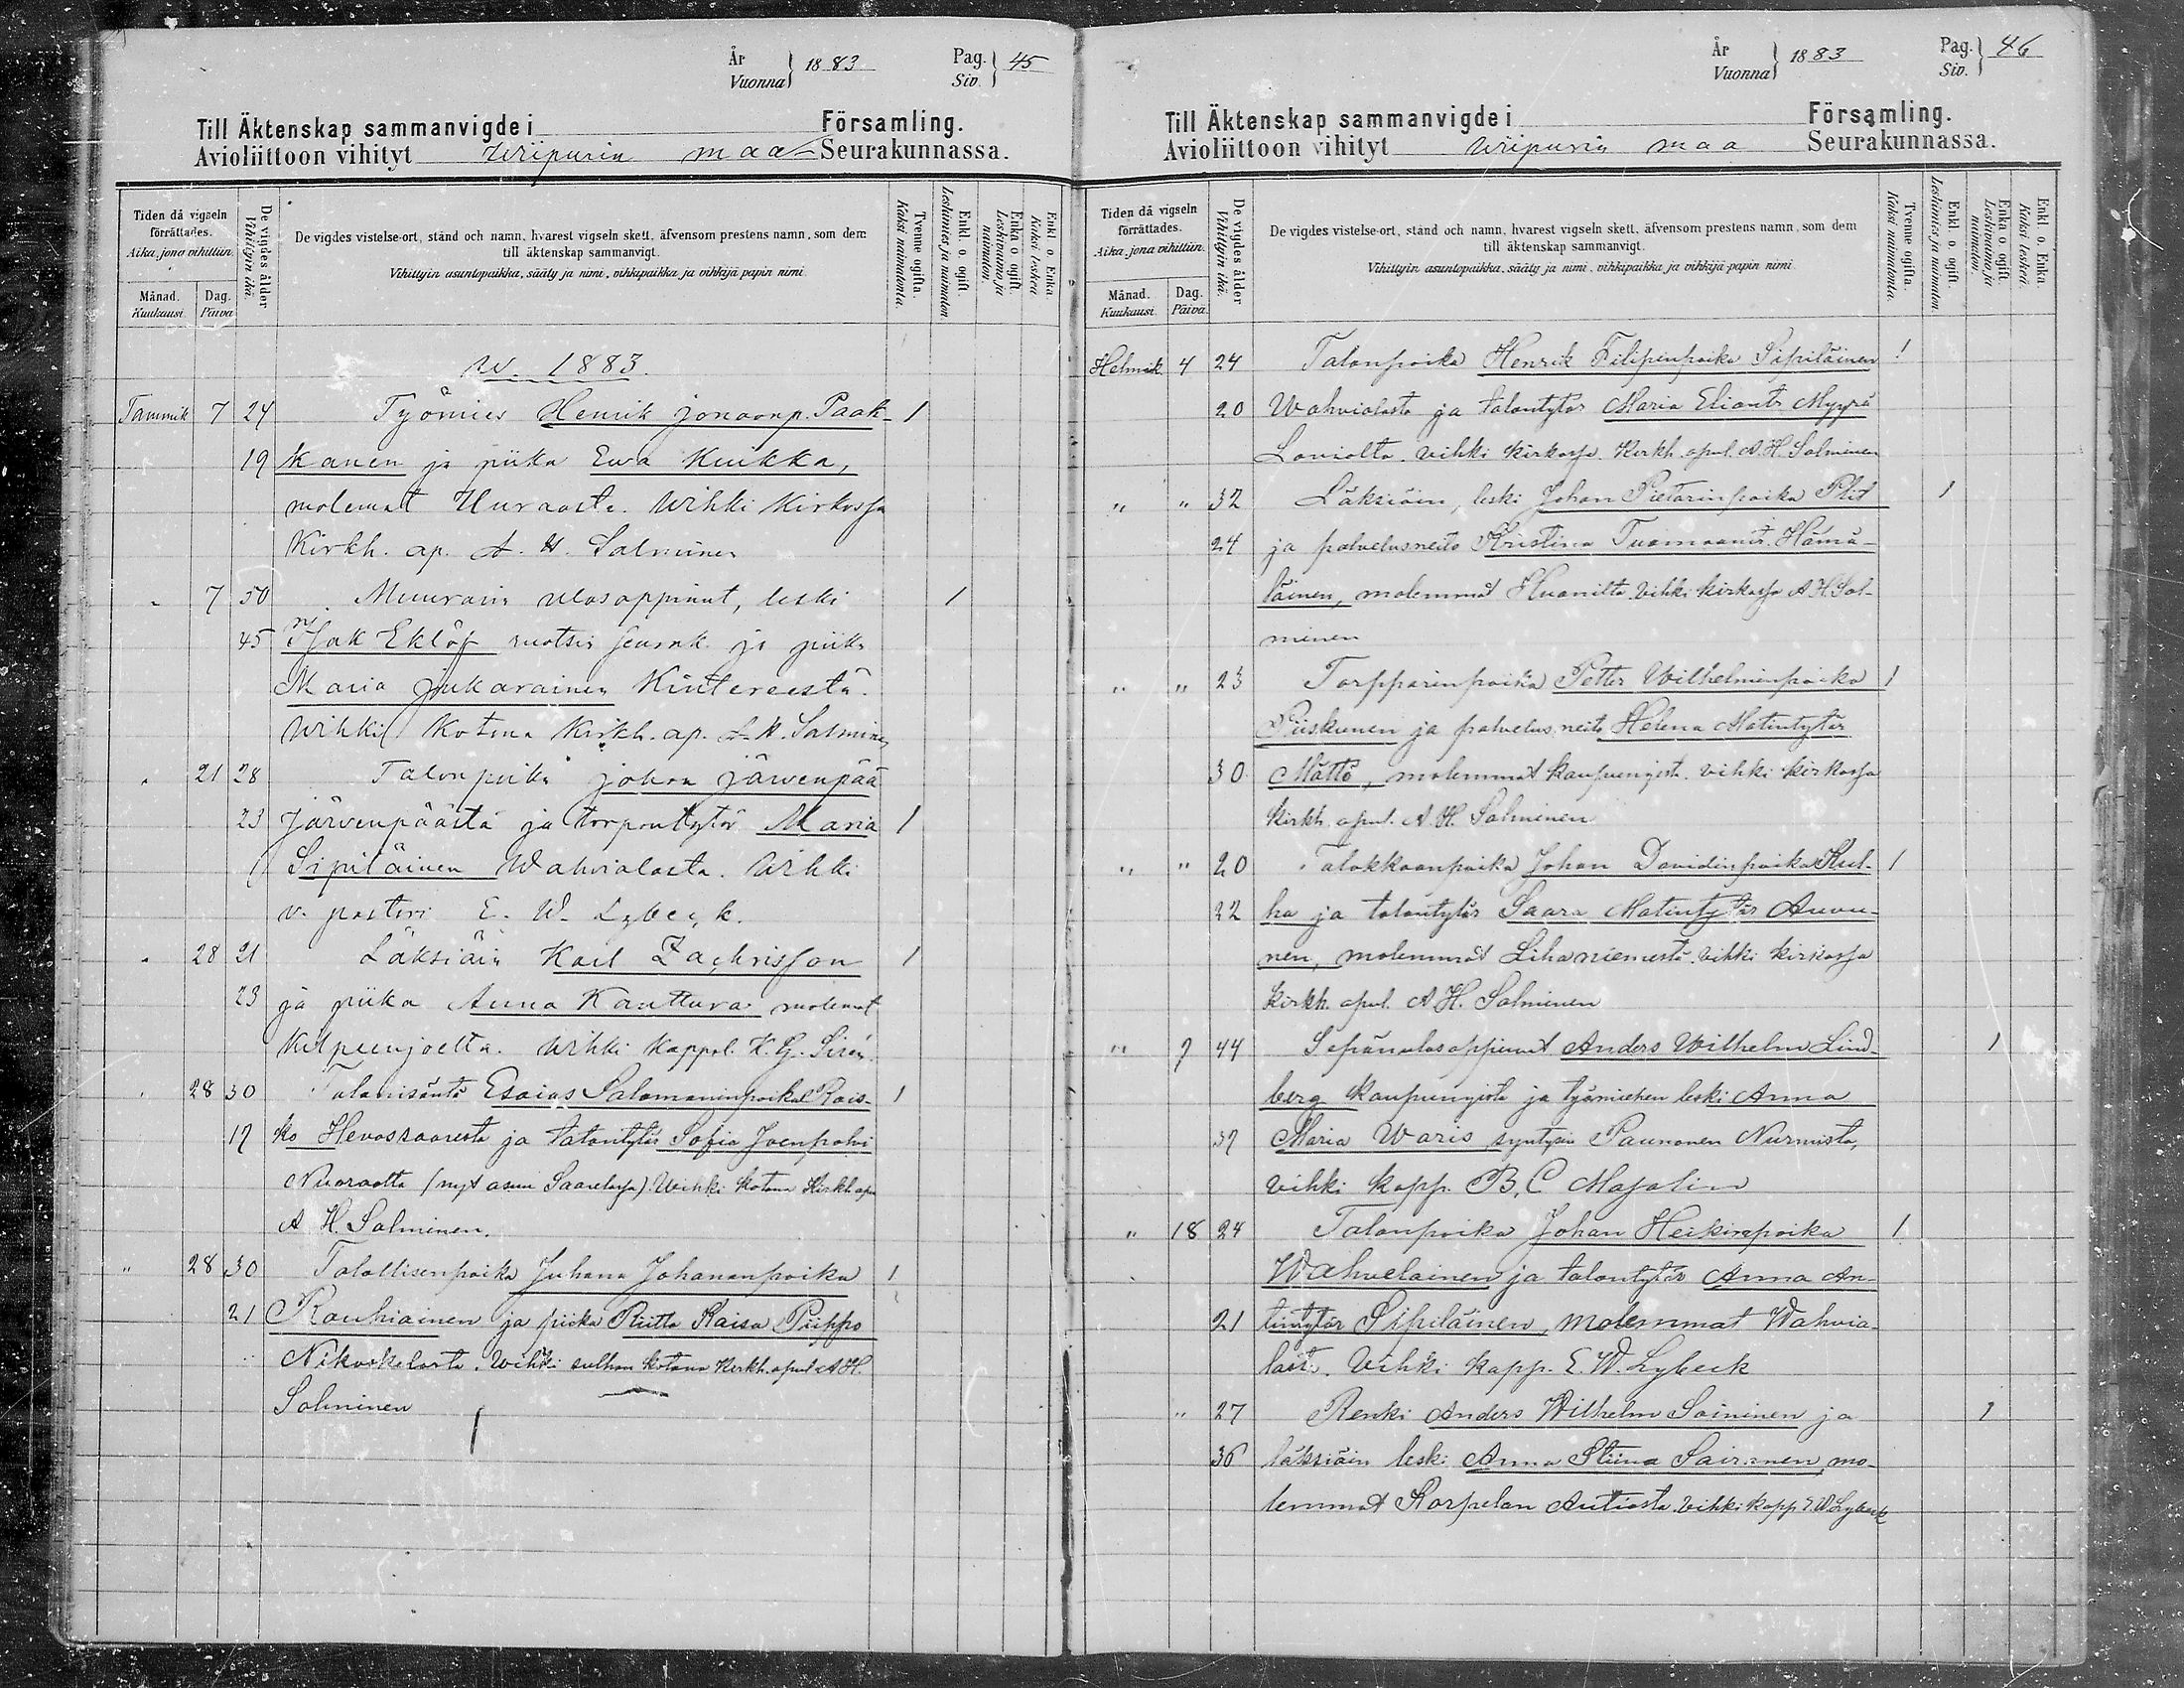 År
Vuonna } 1883
Pag.
Siv. } 45
Till Äktenskap sammanvigde i Församling.
Avioliittoon vihityt Wiipurin maa- Seurakunnassa.
Tiden då vigseln förrättades.
Aika, jona vihittiin.
Månad.
Kuukausi.
Dag.
Päivä
De vigdes ålder
Vihittyin ikä.
De vigdes vistelse-ort, stånd och namn, hvarest vigseln skett, äfvensom prestens namn, som dem
till äktenskap sammanvigt.
Vihittyin asuntopaikka, sääty ja nimi, vihkipaikka ja vihkijä papin nimi.
Tvenne ogifta.
Kaksi naimatonta.
Enkl. o. ogift.
Leskimies ja naimaton
Enka o. ogift.
Leskivaimo ja naimaton.
Enkl o. Enka.
Kaksi leskeä
w. 1883.
Tammik 7 24 Työmies Henrik Jonaanp. Paak- 1
19 kanen ja piika Ewa Kuikka,
molemat Uuraasta. Wihki Kirkossa
Kirkh. ap. A. H. Salminen
" 7 50 Muurarin ulosoppinut, leski 1
45 Isak Eklöf ruotsin seurak. ja piika
Maria Jukarainen Kintereestä.
Wihki Kotona Kirkh. ap. A. H. Salminen
" 21 28 Talonpoika Johan Järwenpää
23 Järwenpäästä ja torpantytär Maria 1
Sipiläinen Wahvialasta. Wihki
v. pastori E. W. Lybeck.
" 28 21 Läksiäin Karl Zachrisson 1
23 ja piika Anna Kanttura molemat
Kilpeenjoelta. Wihki Kappal. K. G. Sirén.
" 28 30 Talonisäntä Esaias Salomoninpoika Rais- 1
17 ko Hevossaaresta ja talontytär Sofia Joenpolvi
Nuoraalta (nyt asuu Saarelassa). Wihki kotona Kirkh. apu
A H. Salminen.
" 28 30 Talollisenpoika Juhana Johananpoika 1
21 Rauhiainen ja piika Riitta Kaisa Piippo
Nikuskalasta. Wihki sulhan kotona Kirkh. apul A H.
Salminen
År
Vuonna } 1883
Pag.
Siv. } 46
Till Äktenskap sammanvigde i Församling.
Avioliittoon vihityt Wiipurin maa Seurakunnassa.
Tiden då vigseln förrättades.
Aika, jona vihittiin.
Månad.
Kuukausi.
Dag.
Päivä.
De vigdes ålder
Vihittyin ikä.
De vigdes vistelse-ort, stånd och namn, hvarest vigseln skett, äfvensom prestens namn, som dem
till äktenskap sammanvigt.
Vihittyin asuntopaikka, sääty ja nimi, vihkipaikka ja vihkijä papin nimi
Tvenne ogifta.
Kaksi naimatonta.
Enkl. o. ogift.
Leskimies ja naimaton.
Enka o. ogift.
Leskivaimo ja naimaton.
Enkl. o. Enka.
Kaksi leskeä.
Helmik 4 24 Talonpoika Henrik Filipinpoika Sipiläinen 1
20 Wahvialasta ja talontytär Maria Eliantr Myyrä
Lavialta. vihki kirkossa. Kirkh. apul. A. H. Salminen
" " 32 Läksiäin, leski Johan Pietarinpoika Plit 1
24 ja palvelusneito Kristina Tuomaantr. Hämä-
läinen, molemmat Huanilta vihki kirkossa A H. Sal-
minen
" " 23 Torpparinpoika Petter Wilhelminpoika 1
Piiskunen ja palvelus neito Helena Matintytär
30 Mättö, molemmat kaupungista. vihki kirkossa
kirkh. apul. A. H. Salminen
" " 20 Talokkaanpoika Johan Davidinpoika Kul- 1
22 ha ja talontytär Saara Matintytär Anvu-
nen, molemmat Lihaniemestä. vihki kirkossa
kirkh. apul. A H. Salminen
" 7 44 Sepänulosoppinut Anders Wilhelm Lind- 1
berg kaupungista ja työmiehen leski Anna
37 Maria Waris syntysin Paunonen Nurmista,
vihki kapp. B. C Majalin
" 18 24 Talonpoika Johan Heikinpoika 1
Wahvelainen ja talontytär Anna An-
21 tintytär Sipiläinen, molemmat Wahvia-
lasta. Vihki kapp. E. W. Lybeck
" 27 Renki Anders Wilhelm Soininen ja 1
36 läksiäin leski Anna Stiina Sairanen, mo-
lemmat Karpelan Autiosta vihki kapp E. W Lybeck